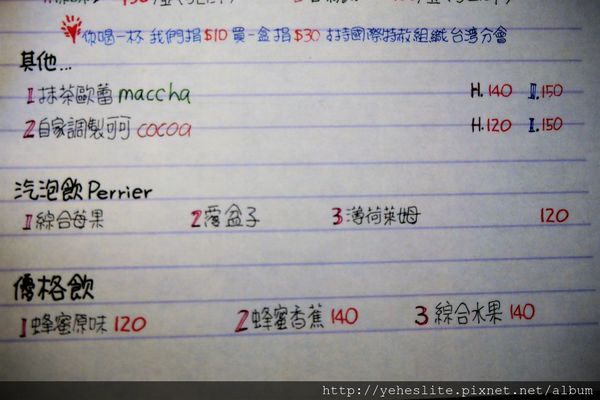 你喝一杯 我們捐$10 買一盒捐$30 扶持國際特赦組織台灣分會
其他...
1抹茶歐蕾 maccha H.140 I.150
2自家調製可可 cocoa H.120 I.150
汽泡飲Perrier
1綜合莓果 2覆盆子 3薄荷萊姆 120
優格飲
1蜂蜜原味 120 2蜂蜜香蕉 140 3綜合水果 140
http://yeheslite.pixnet.net/album